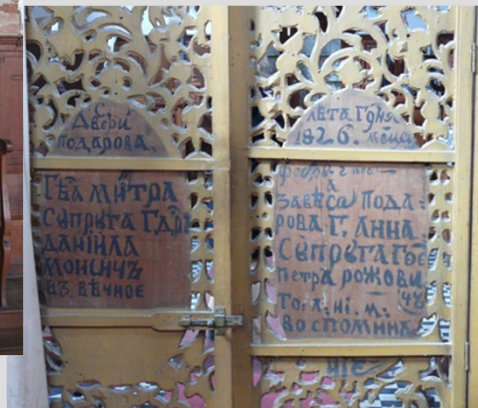 Двери
подарова.
Гв҃а Митра
Супруга Гдрⷭ
даніила
Моисичъ
въ вѣчное
лѣта Гдня
1826. мсца
завѣса пода-
рова Г. Анна
Супруга Гос
петра рожови
чъ
То. л. ні. м.
во спомина
ніе